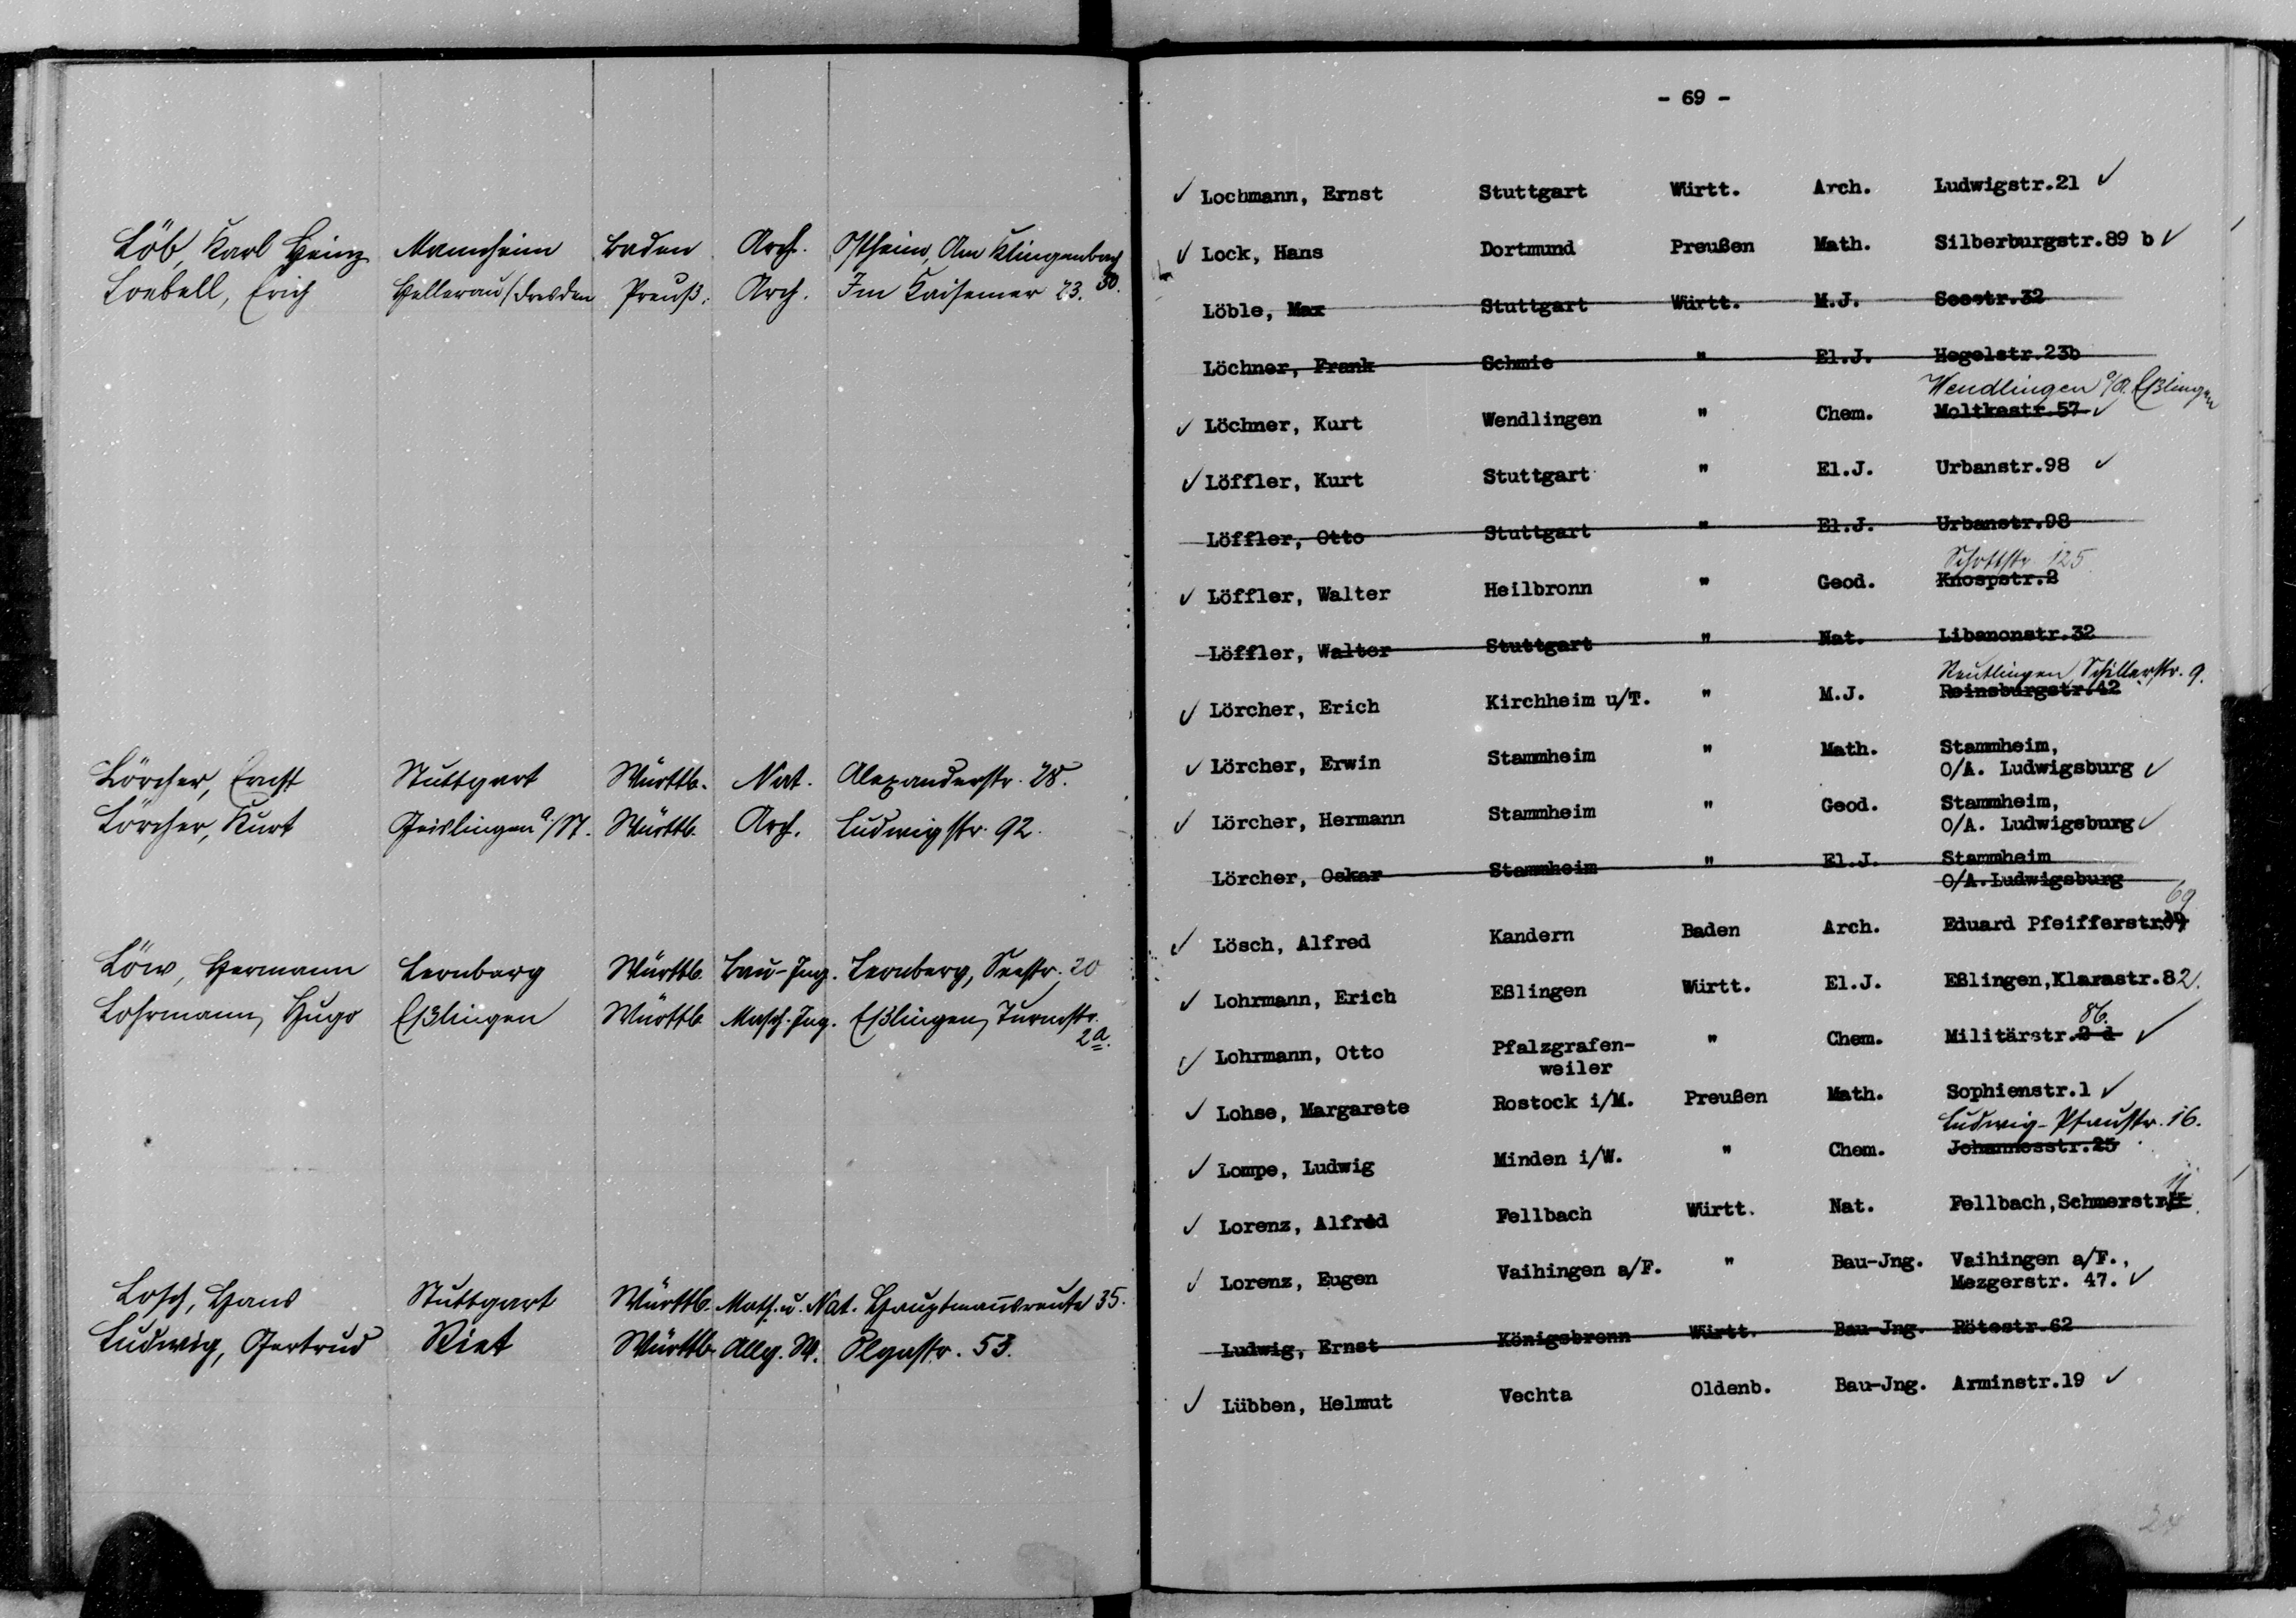 Löb, Karl Heinz Mannheim Baden Arch. Ostheim, Am Klingenbach 30.
Loebell, Erich Hellerau/Dresden Preuß. Arch. Im Kaisemer 23.
Lörcher, Ernst Stuttgart Württb. Nat. Alexanderstr. 28.
Lörcher, Kurt Geislingen a/St. Württb. Arch. Ludwigstr. 92.
Löw, Hermann Leonberg Württb. Bau-Ing. Leonberg, Seestr. 20
Lohrmann, Hugo Eßlingen Württb. Masch.-Ing. Eßlingen, Turmstr.
2a.
Losch, Hans Stuttgart Württb. Math. u. Nat. Hauptmannsreute 35.
Ludwig, Gertrud Riet Württb. Allg. W. Olgastr. 53.
- 69 -
Lochmann, Ernst Stuttgart Württ. Arch. Ludwigstr.21 ✓
Lock, Hans Dortmund Preußen Math. Silberburgstr.89 b ✓
Löble, Max Stuttgart Württ. M.J. Seestr.32
Löchner, Frank Schmie " El.J. Hegelstr.23b
Wendlingen O/A. Eßlingen
Löchner, Kurt Wendlingen " Chem. Moltkestr.57 ✓
Löffler, Kurt Stuttgart " El.J. Urbanstr.98 ✓
Löffler, Otto Stuttgart " El.J. Urbanstr.98
Schottstr. 125
Löffler, Walter Heilbronn " Geod. Knospstr.2
Löffler, Walter Stuttgart " Nat. Libanonstr.32
Reutlingen, Schillerstr. 9.
Lörcher, Erich Kirchheim u/T. " M.J. Reinsburgstr.42
Lörcher, Erwin Stammheim " Math. Stammheim,
O/A. Ludwigsburg ✓
Lörcher, Hermann Stammheim " Geod. Stammheim,
O/A. Ludwigsburg ✓
Lörcher, Oskar Stammheim " El.J. Stammheim
O/A.Ludwigsburg
69
Lösch, Alfred Kandern Baden Arch. Eduard Pfeifferstr.
Lohrmann, Erich Eßlingen Württ. El.J. Eßlingen,Klarastr.82.
86.
Lohrmann, Otto Pfalzgrafen- " Chem. Militärstr.2 d ✓
weiler
Lohse, Margarete Rostock i/M. Preußen Math. Sophienstr.1 ✓
Ludwig-Pfaustr. 16.
Lompe, Ludwig Minden i/W. " Chem. Johannesstr.25
11
Lorenz, Alfred Fellbach Württ. Nat. Fellbach,Schmerstr.
Lorenz, Eugen Vaihingen a/F. " Bau-Jng. Vaihingen a/F.,
Mezgerstr. 47. ✓
Ludwig, Ernst Königsbronn Württ. Bau-Jng. Rötestr.62
Lübben, Helmut Vechta Oldenb. Bau-Jng. Arminstr.19 ✓